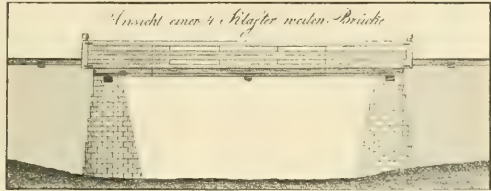 Ansicht einer 4 Klafter weiten Brücke